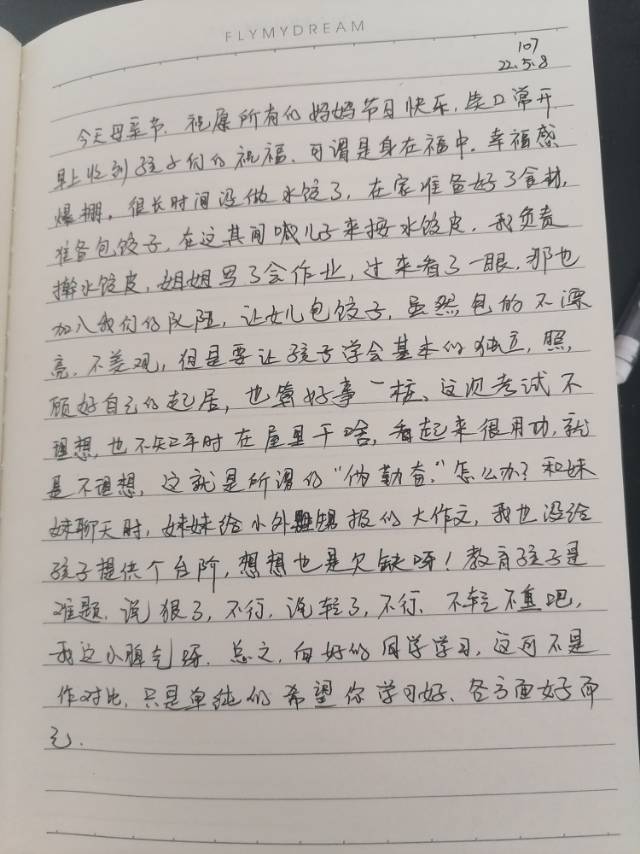 FLYMYDREAM
107
22.5.8
今天母亲节.祝愿所有的妈妈节日快乐,笑口常开
早上收到孩子们的祝福.可谓是身在福中.幸福感
爆棚,很长时间没做水饺了,在家准备好了食材,
准备包饺子,在这其间喊儿子来按水饺皮.我负责
擀水饺皮,姐姐写了会作业,过来看了一眼.那也
加入我们的队陞,让女儿包饺子,虽然包的不漂
亮.不美观,但是要让孩子学会基本的独立.照,
顾好自己的起居,也算好事一桩、这次考试不
理想,也不知平时在屋里干啥,看起来很用功,就
是不理想,这就是所谓的“伪勤奋.”怎么办?和妹
妹聊天时,妹妹给小外甥报的大作文,我也没给
孩子提供个台阶,想想也是欠缺呀!教育孩子是
难题.说狠了,不行.说轻了,不行.不轻不重吧,
我这小脾气呀.总之.向好的同学学习,这可不是
作对比.只是单纯的希望你学习好、各方面好而
已.